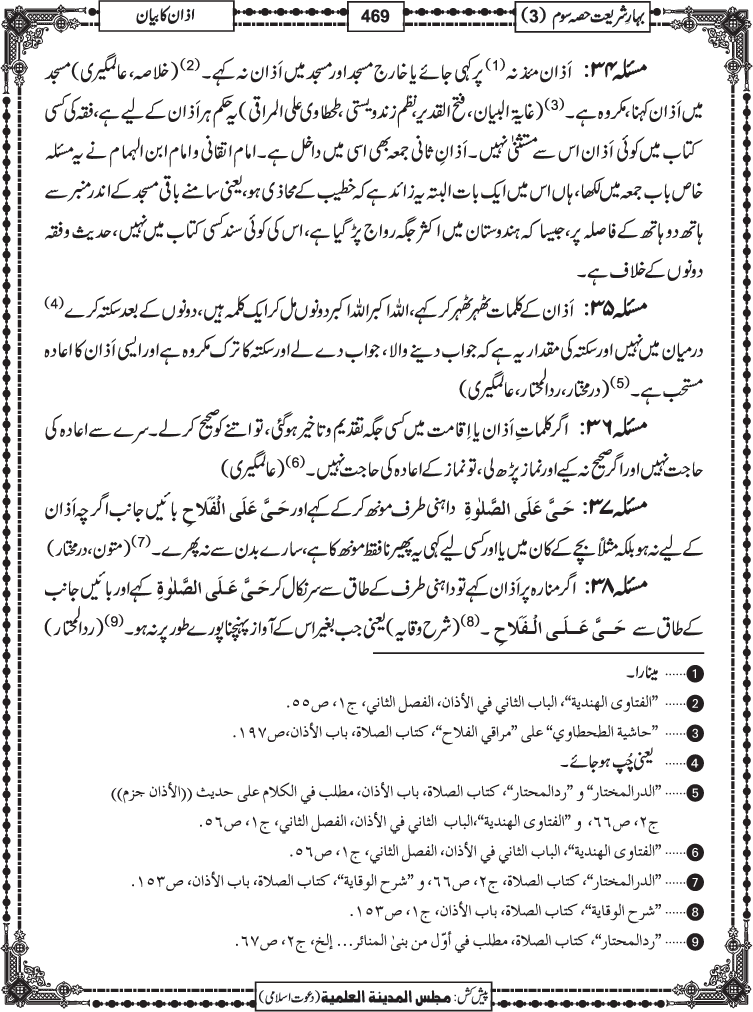 بہارِ شریعت حصہ سوم (3)
469
اذان کا بیان
مسئلہ ۳۴: اَذان مئذنہ (1) پر کہی جائے یا خارج مسجد اور مسجد میں اَذان نہ کہے۔ (2) (خلاصہ، عالمگیری) مسجد
میں اَذان کہنا، مکروہ ہے۔ (3) (غایۃ البیان، فتح القدیر، نظم زندویستی، طحطاوی علی المراقی) یہ حکم ہر اَذان کے لیے ہے، فقہ کی کسی
کتاب میں کوئی اَذان اس سے مستثنیٰ نہیں۔ اَذانِ ثانی جمعہ بھی اسی میں داخل ہے۔ امام اتقانی و امام ابن الہمام نے یہ مسئلہ
خاص باب جمعہ میں لکھا، ہاں اس میں ایک بات البتہ یہ زائد ہے کہ خطیب کے محاذی ہو، یعنی سامنے باقی مسجد کے اندر منبر سے
ہاتھ دو ہاتھ کے فاصلہ پر، جیسا کہ ہندوستان میں اکثر جگہ رواج پڑ گیا ہے، اس کی کوئی سند کسی کتاب میں نہیں، حدیث و فقہ
دونوں کے خلاف ہے۔
مسئلہ ۳۵: اَذان کے کلمات ٹھہر ٹھہر کر کہے، اللہ اکبر اللہ اکبر دونوں مل کر ایک کلمہ ہیں، دونوں کے بعد سکتہ کرے (4)
درمیان میں نہیں اور سکتہ کی مقدار یہ ہے کہ جواب دینے والا، جواب دے لے اور سکتہ کا ترک مکروہ ہے اور ایسی اَذان کا اعادہ
مستحب ہے۔ (5) (درمختار، ردالمحتار، عالمگیری)
مسئلہ ۳۶: اگر کلماتِ اَذان یا اِقامت میں کسی جگہ تقدیم و تاخیر ہوگئی، تو اتنے کو صحیح کر لے۔ سرے سے اعادہ کی
حاجت نہیں اور اگر صحیح نہ کیے اور نماز پڑھ لی، تو نماز کے اعادہ کی حاجت نہیں۔ (6) (عالمگیری)
مسئلہ ۳۷: حَیَّ عَلَی الصَّلٰوۃِ داہنی طرف مونھ کر کے کہے اور حَیَّ عَلَی الْفَلَاحِ بائیں جانب اگرچہ اَذان
کے لیے نہ ہو بلکہ مثلاً بچے کے کان میں یا اور کسی لیے کہی یہ پھیرنا فقط مونھ کا ہے، سارے بدن سے نہ پھرے۔ (7) (متون، درمختار)
مسئلہ ۳۸: اگر منارہ پر اَذان کہے تو داہنی طرف کے طاق سے سر نکال کر حَیَّ عَلَی الصَّلٰوۃِ کہے اور بائیں جانب
کے طاق سے حَیَّ عَلَی الْفَلَاحِ ۔ (8) (شرح وقایہ) یعنی جب بغیر اس کے آواز پہنچنا پورے طور پر نہ ہو۔ (9) (ردالمحتار)
1 ...... مینارا۔
2 ...... ”الفتاوی الھندیۃ“، الباب الثاني في الأذان، الفصل الثاني، ج۱، ص۵۵.
3 ...... ”حاشیۃ الطحطاوي“ علی ”مراقي الفلاح“، کتاب الصلاۃ، باب الأذان، ص۱۹۷.
4 ...... یعنی چُپ ہو جائے۔
5 ...... ”الدرالمختار“ و ”ردالمحتار“، کتاب الصلاۃ، باب الأذان، مطلب في الکلام علی حدیث ((الأذان جزم))
ج۲، ص۶۶، و ”الفتاوی الھندیۃ“،الباب الثاني في الأذان، الفصل الثاني، ج۱، ص۵۶.
6 ...... ”الفتاوی الھندیۃ“، الباب الثاني في الأذان، الفصل الثاني، ج۱، ص۵۶.
7 ...... ”الدرالمختار“، کتاب الصلاۃ، ج۲، ص۶۶، و ”شرح الوقایۃ“، کتاب الصلاۃ، باب الأذان، ص۱۵۳.
8 ...... ”شرح الوقایۃ“، کتاب الصلاۃ، باب الأذان، ج۱، ص۱۵۳.
9 ...... ”ردالمحتار“، کتاب الصلاۃ، مطلب في أوّل من بنیٰ المنائر... إلخ، ج۲، ص۶۷.
پیش کش: مجلس المدینۃ العلمیۃ (دعوتِ اسلامی)